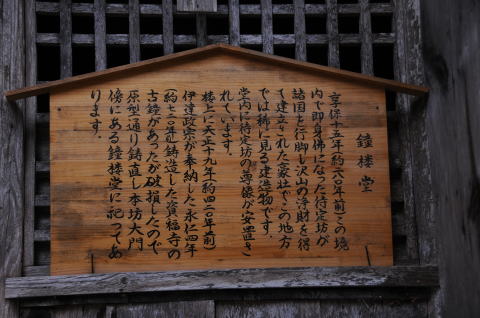 鐘楼堂
享保十五年(約二六〇年前)この境
内で即身佛になった待定坊が
諸国を行脚し沢山の浄財を得
て建立された豪壮でこの地方
では稀に見る建造物です。
堂内に待定坊の尊像が安置さ
れています。
楼上に天正十九年(約四二〇年前)
伊達政宗が奉納した永仁四年
鋳造した資福寺の
古鐘があったが破損したので
原型通り鋳直し本坊大門
傍にある鐘楼堂に祀ってあ
ります。